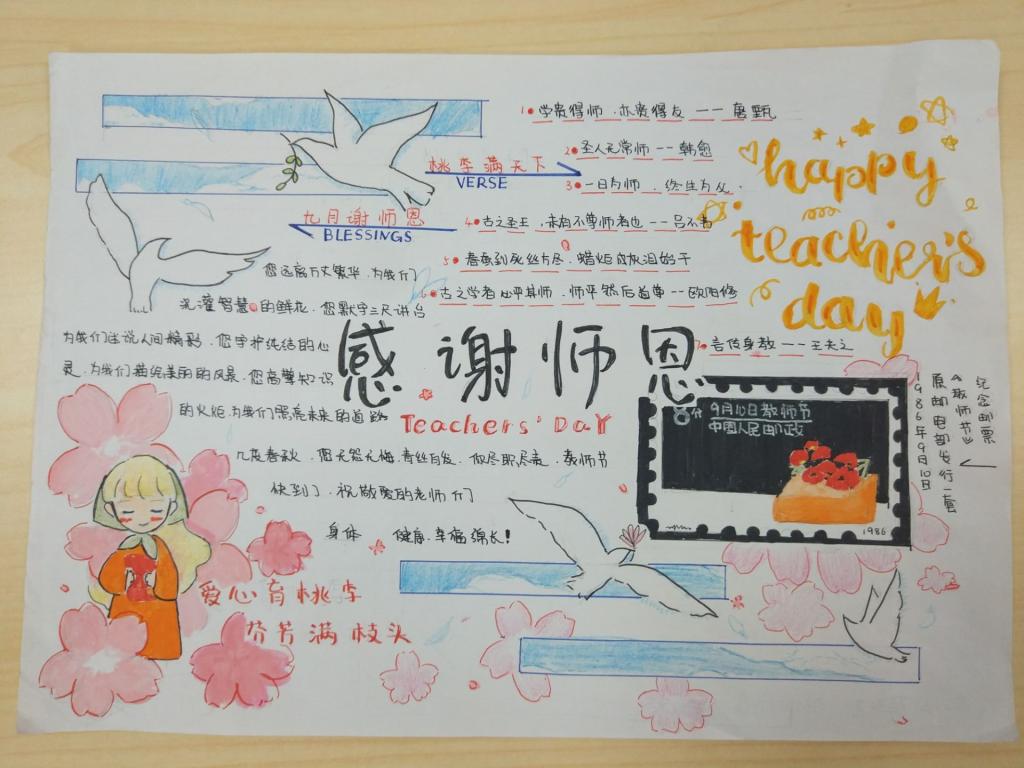 1 学贵得师，亦贵得友 —— 唐甄
2 圣人无常师 —— 韩愈
桃李满天下
VERSE
3 一日为师，终生为父.
九月谢师恩
BLESSINGS
4 古之圣王，未有不尊师者也 —— 吕不韦
5 春蚕到死丝方尽，蜡炬成灰泪始干
6 古之学者必严其师，师严然后道尊 —— 欧阳修
7 言传身教 —— 王夫之
happy
teacher's
day
您远离万丈繁华，为我们
浇灌智慧的鲜花，您默守三尺讲台
为我们述说人间精彩，您守护纯洁的心
灵，为我们描绘美丽的风景，您高擎知识
的火炬，为我们照亮未来的道路
几度春秋，您无怨无悔，青丝白发，你尽职尽责，教师节
快到了，祝敬爱的老师们
身体 健康，幸福绵长！
感谢师恩
Teachers' DAY
8分
9月10日教师节
中国人民邮政
1986
纪念邮票
《教师节》
原邮电部发行一套
1986年9月10日
爱心育桃李
芬芳满枝头